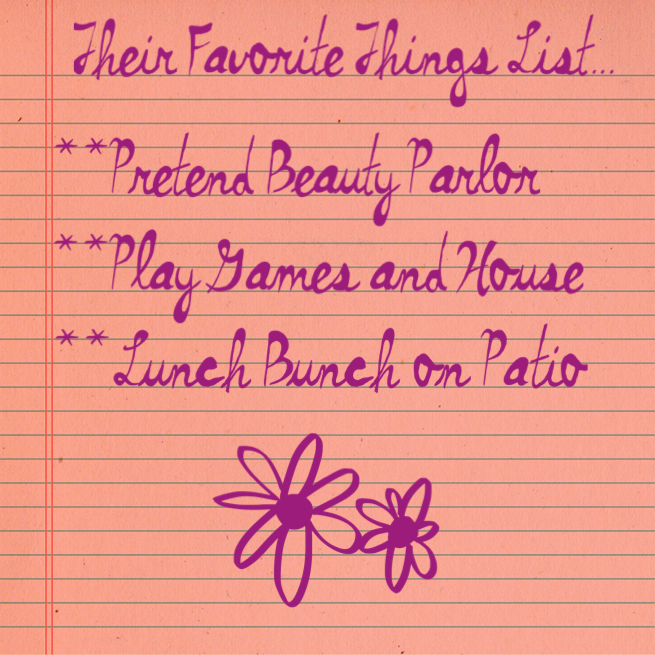 Their Favorite Things List...
**Pretend Beauty Parlor
**Play Games and House
** Lunch Bunch on Patio